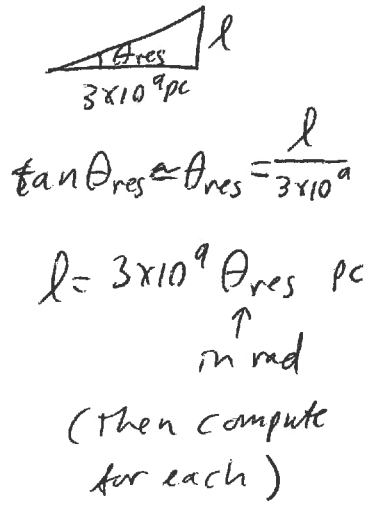 θres
l
3x10⁹pc
tan θres ≃ θres = l / 3x10⁹
l = 3x10⁹ θres pc
↑
in rad
(then compute
for each)